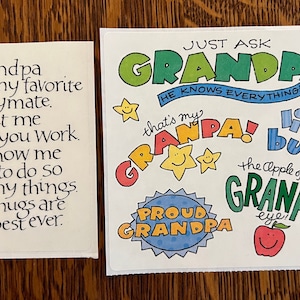 ndpa
ny favorite
ymate.
t me
you work
how me
to do so
ny things.
hugs are
est ever.
JUST ASK
GRANDPA
HE KNOWS EVERYTHING
that's my
GRANPA!
PROUD
GRANDPA
the apple of
GRAN
eye